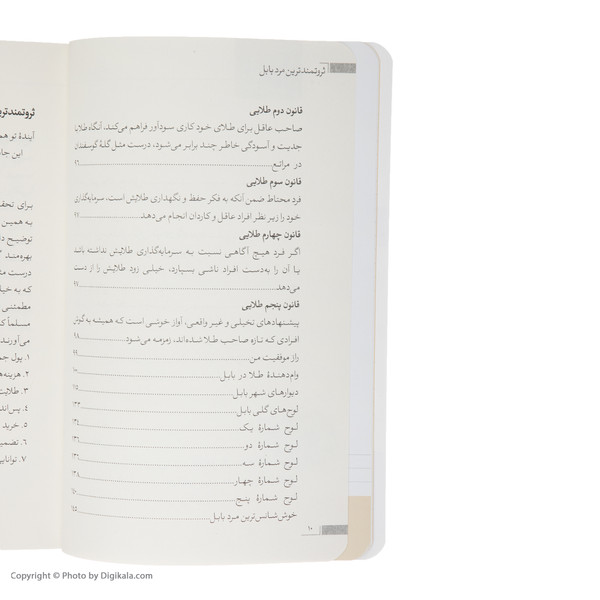 ثروتمندترین مرد بابل
قانون دوم طلایی
صاحب عاقل برای طلای خود کاری سودآور فراهم می‌کند، آنگاه طلابا
جدیت و آسودگی خاطر چند برابر می‌شود، درست مثل گلهٔ گوسفندان
در مراتع
قانون سوم طلایی
فرد محتاط ضمن آنکه به فکر حفظ و نگهداری طلایش است، سرمایه‌گذاری
خود را زیر نظر افراد عاقل و کاردان انجام می‌دهد
قانون چهارم طلایی
اگر فرد هیچ آگاهی نسبت به سرمایه‌گذاری طلایش نداشته باشد
یا آن را به‌دست افراد ناشی بسپارد، خیلی زود طلایش را از دست
می‌دهد
قانون پنجم طلایی
پیشنهادهای تخیلی و غیر واقعی، آواز خوشی است که همیشه به گوش
افرادی که تازه صاحب طلا شده‌اند، زمزمه می‌شود ۹۸
راز موفقیت من ۹۹
وام‌دهندهٔ طلا در بابل
دیوارهای شهر بابل
لوح‌های گلی بابل ۱۲۳
لوح شمارهٔ یک ۱۲۴
لوح شمارهٔ دو
لوح شمارهٔ سه
لوح شمارهٔ چهار ۱۲۸
لوح شمارهٔ پنج
خوش‌شانس‌ترین مرد بابل ۱۴۵
۱۰
ثروتمندتری
آیندهٔ تو هم
این جا
برای تحقـ
به همین
توضیح دا
بهره‌مند
درست مثـ
که به خیا
مطمئنی
مسلماً کـ
می‌آورنـد
۱. پول جمـ
۲. هزینه‌هـ
۳. طلایت
۴. پس‌اند
۵. خرید
۶. تضمیـ
۷. توانایی
Copyright © Photo by Digikala.com